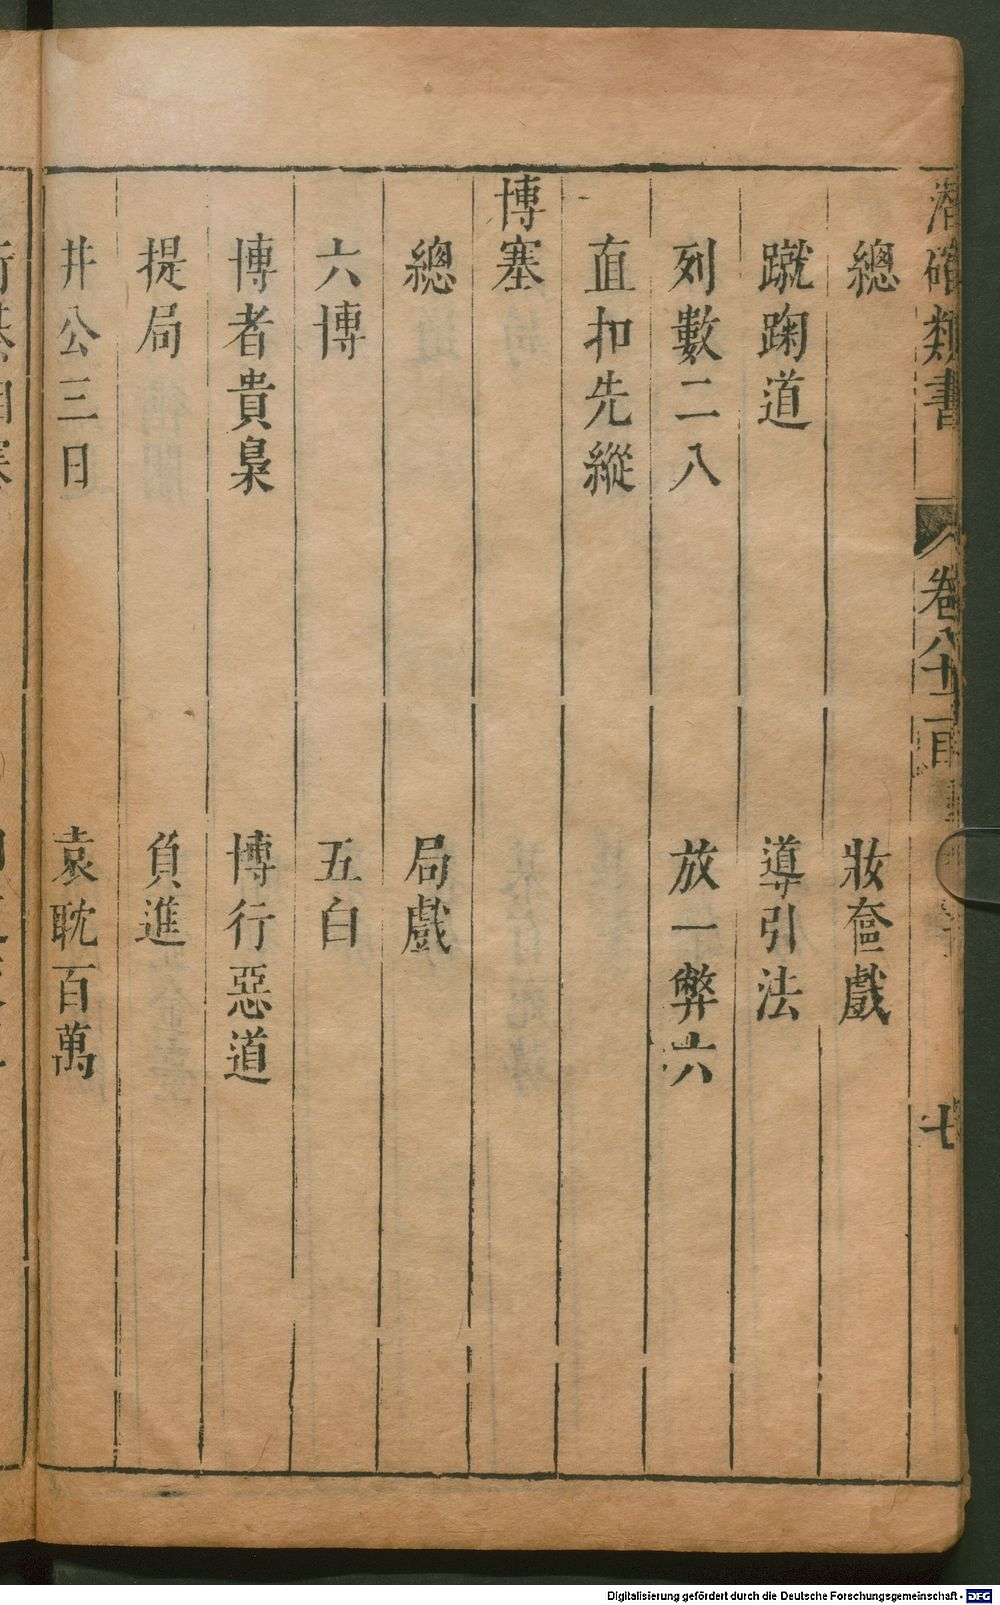 潛確類書 卷八十二目 七
總 妝奩戲
蹴踘道 導引法
列數二八 放一弊六
直扣先縱
博塞
總 局戲
六博 五白
博者貴梟 博行惡道
提局 負進
井公三日 袁耽百萬
Digitalisierung gefördert durch die Deutsche Forschungsgemeinschaft - DFG